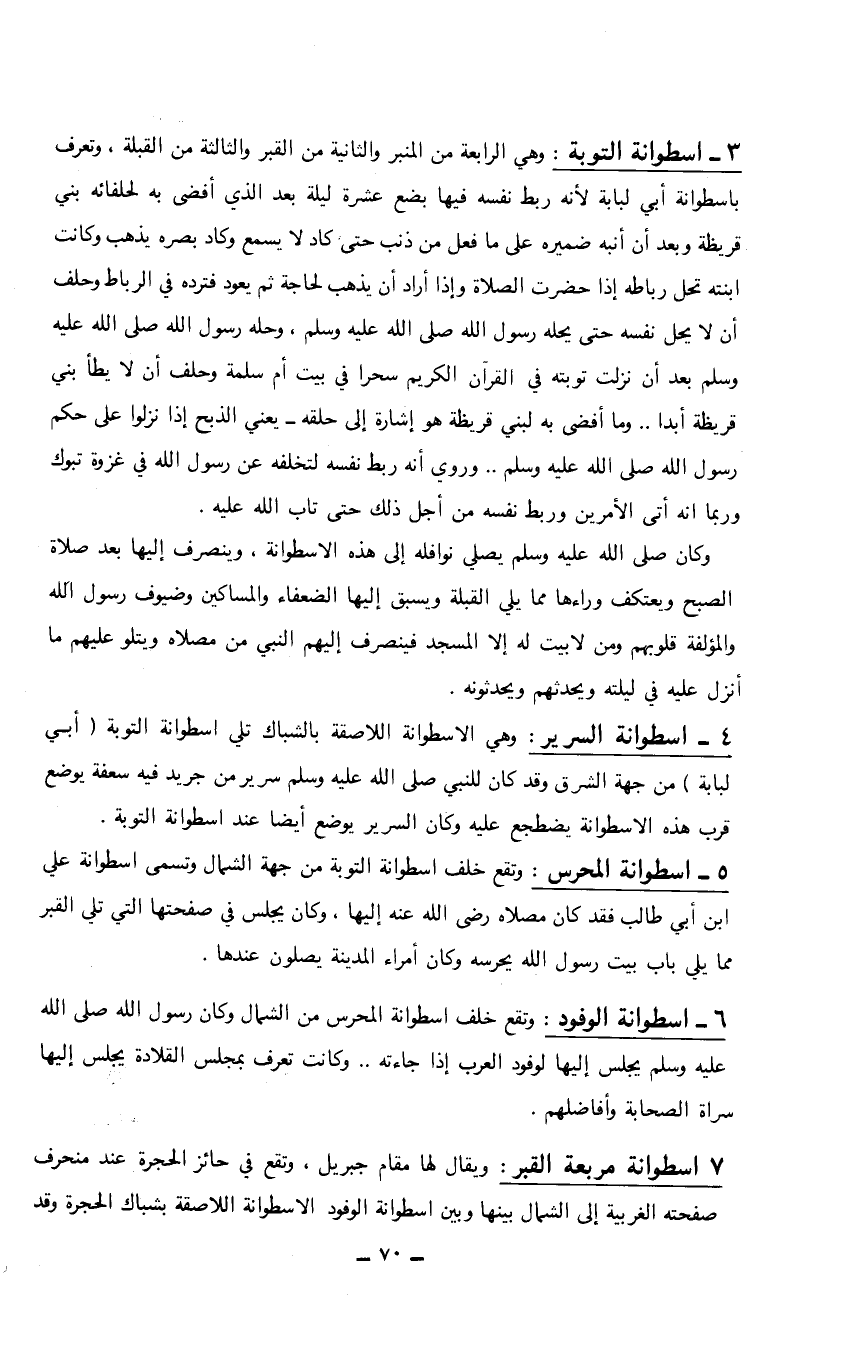 ٣ ـ اسطوانة التوبة : وهي الرابعة من المنبر والثانية من القبر والثالثة من القبلة ، وتعرف
باسطوانة أبي لبابة لأنه ربط نفسه فيها بضع عشرة ليلة بعد الذي أفضى به لحلفائه بني
قريظة وبعد أن أنبه ضميره على ما فعل من ذنب حتى كاد لا يسمع وكاد بصره يذهب وكانت
ابنته تحل رباطه إذا حضرت الصلاة وإذا أراد أن يذهب لحاجة ثم يعود فترده في الرباط وحلف
أن لا يحل نفسه حتى يحله رسول الله صلى الله عليه وسلم ، وحله رسول الله صلى الله عليه
وسلم بعد أن نزلت توبته في القرآن الكريم سحرا في بيت أم سلمة وحلف أن لا يطأ بني
قريظة أبدا .. وما أفضى به لبني قريظة هو إشارة إلى حلقه ـ يعني الذبح إذا نزلوا على حكم
رسول الله صلى الله عليه وسلم .. وروي أنه ربط نفسه لتخلفه عن رسول الله في غزوة تبوك
وربما انه أتى الأمرين وربط نفسه من أجل ذلك حتى تاب الله عليه .
وكان صلى الله عليه وسلم يصلي نوافله إلى هذه الاسطوانة ، وينصرف إليها بعد صلاة
الصبح ويعتكف وراءها مما يلي القبلة ويسبق إليها الضعفاء والمساكين وضيوف رسول الله
والمؤلفة قلوبهم ومن لابيت له إلا المسجد فينصرف إليهم النبي من مصلاه ويتلو عليهم ما
أنزل عليه في ليلته ويحدثهم ويحدثونه .
٤ ـ اسطوانة السرير : وهي الاسطوانة اللاصقة بالشباك تلي اسطوانة التوبة ( أبي
لبابة ) من جهة الشرق وقد كان للنبي صلى الله عليه وسلم سرير من جريد فيه سعفة يوضع
قرب هذه الاسطوانة يضطجع عليه وكان السرير يوضع أيضا عند اسطوانة التوبة .
٥ ـ اسطوانة المحرس : وتقع خلف اسطوانة التوبة من جهة الشمال وتسمى اسطوانة علي
ابن أبي طالب فقد كان مصلاه رضى الله عنه إليها ، وكان يجلس في صفحتها التي تلي القبر
مما يلي باب بيت رسول الله يحرسه وكان أمراء المدينة يصلون عندها .
٦ ـ اسطوانة الوفود : وتقع خلف اسطوانة المحرس من الشمال وكان رسول الله صلى الله
عليه وسلم يجلس إليها لوفود العرب إذا جاءته .. وكانت تعرف بمجلس القلادة يجلس إليها
سراة الصحابة وأفاضلهم .
٧ اسطوانة مربعة القبر : ويقال لها مقام جبريل ، وتقع في حائز الحجرة عند منحرف
صفحته الغربية إلى الشمال بينها وبين اسطوانة الوفود الاسطوانة اللاصقة بشباك الحجرة وقد
ـ ٧٠ ـ